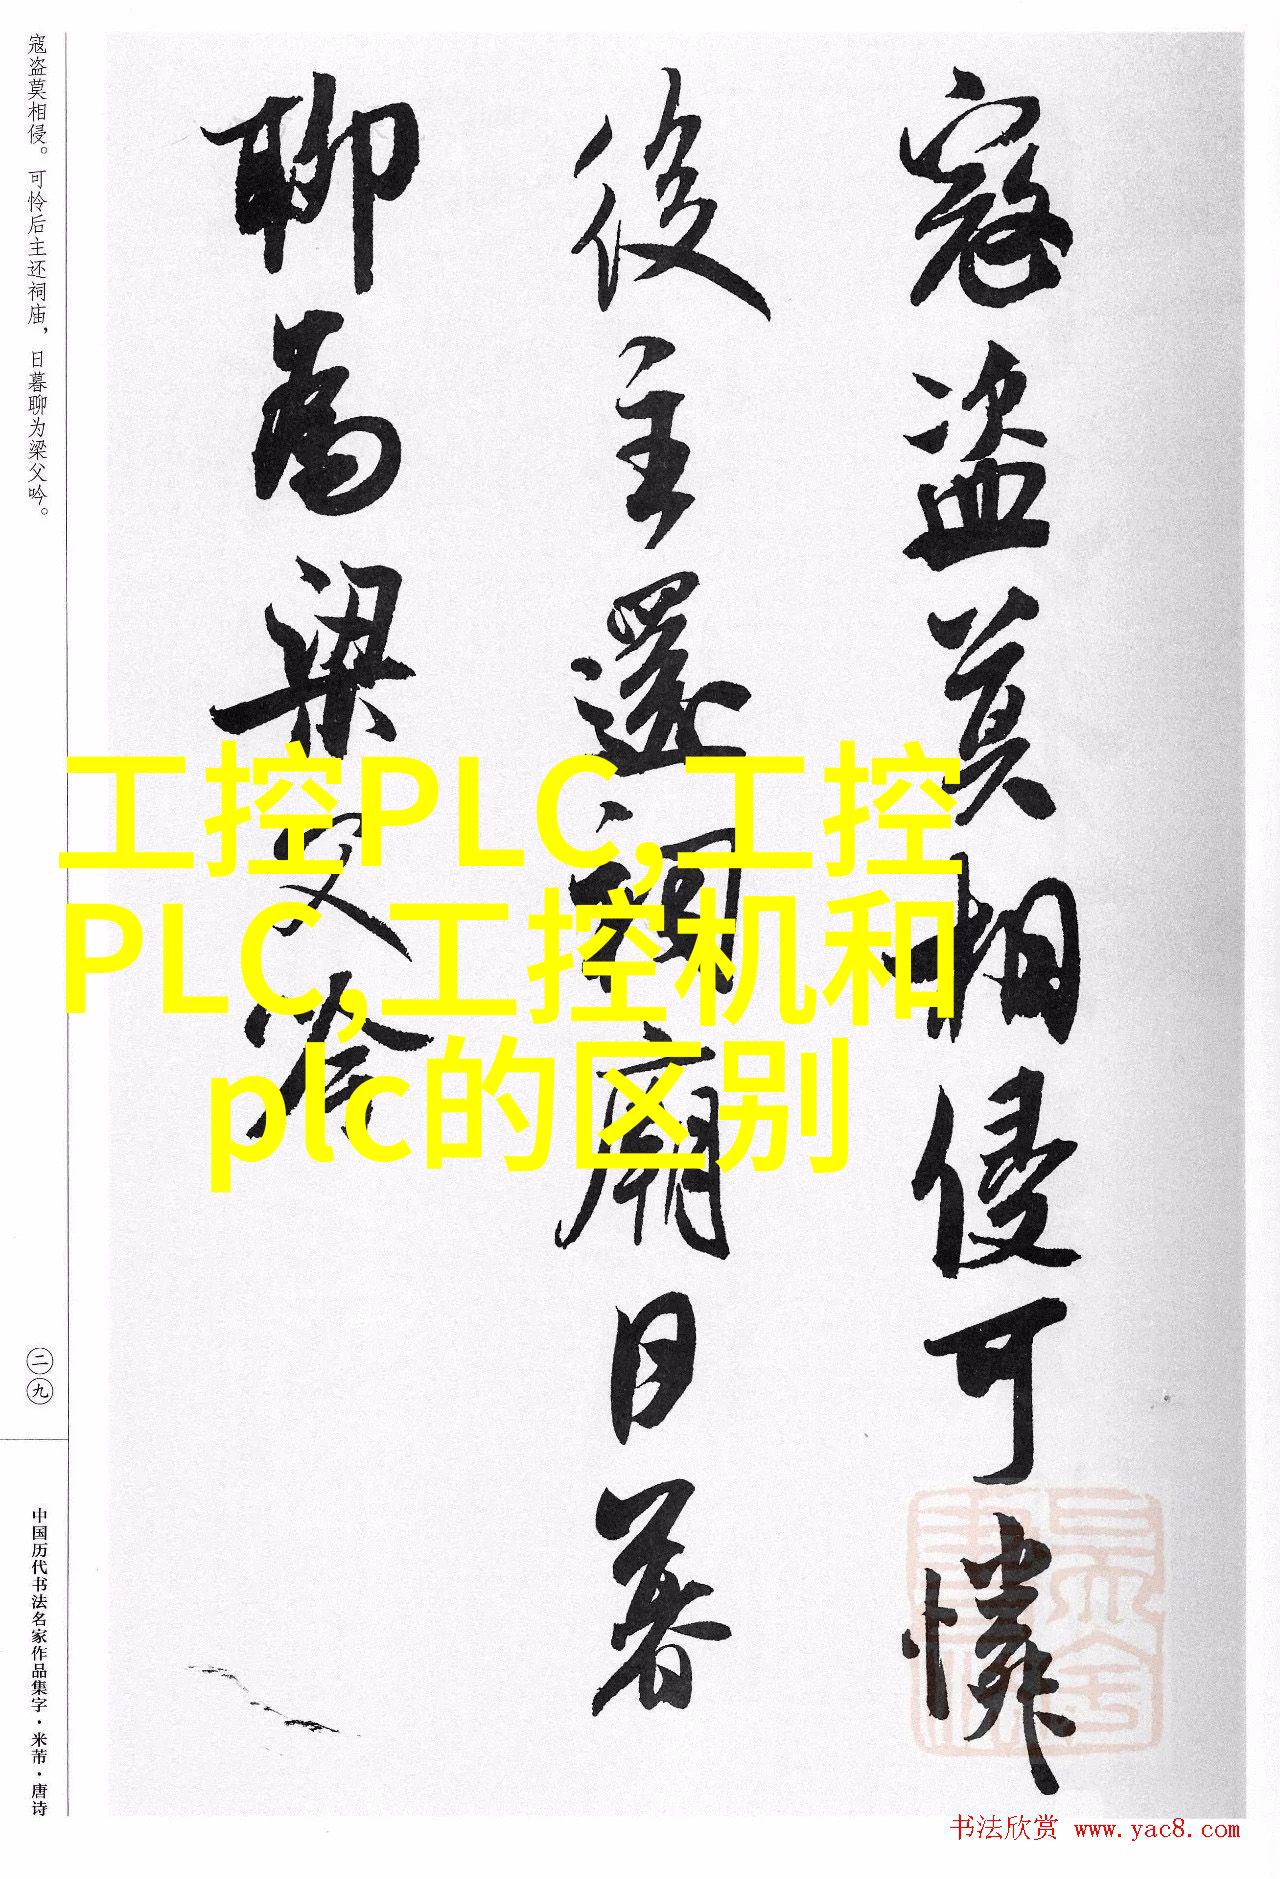 寇盗莫相侵可憐
後主還祠廟日暮
聊為梁父吟
工控PLC,工控
PLC,工控机和
plc的区别
寇盗莫相侵。可怜后主还祠庙，日暮聊为梁父吟。
二九
中国历代书法名家作品集字·米芾·唐诗
书法欣赏 www.yac8.com